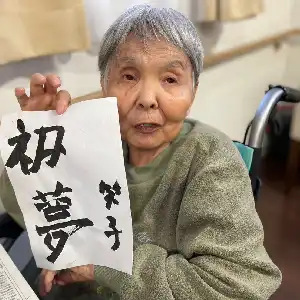 初夢
笑子